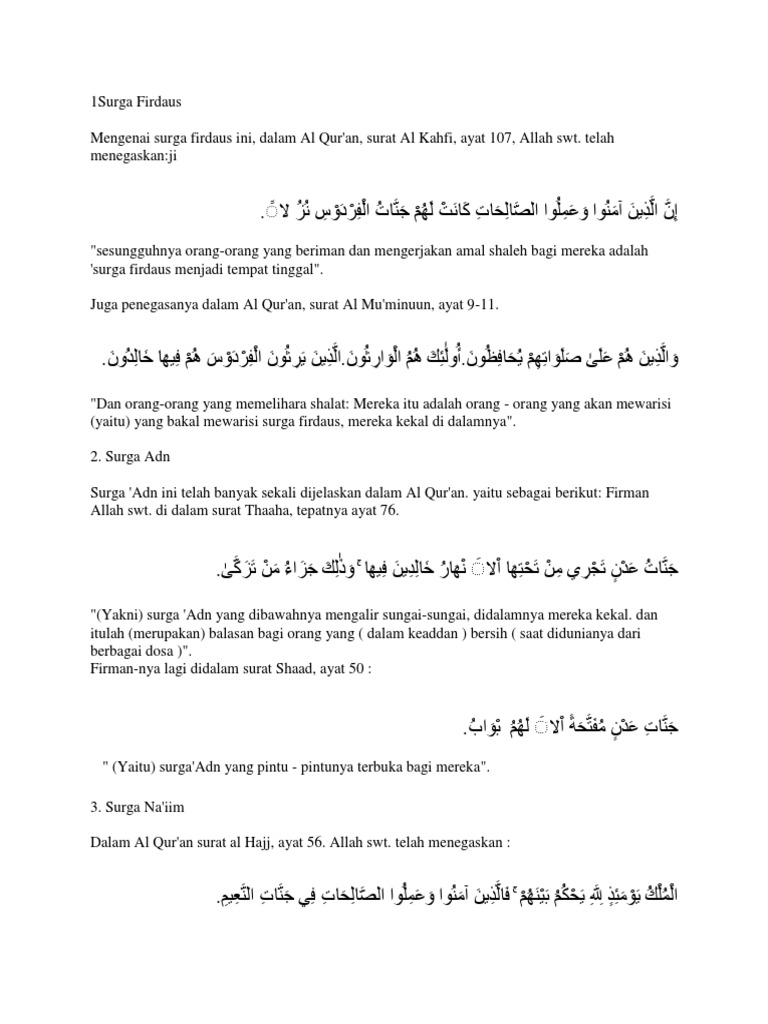 1Surga Firdaus
Mengenai surga firdaus ini, dalam Al Qur'an, surat Al Kahfi, ayat 107, Allah swt. telah
menegaskan:ji
إِنَّ الَّذِينَ آمَنُوا وَعَمِلُوا الصَّالِحَاتِ كَانَتْ لَهُمْ جَنَّاتُ الْفِرْدَوْسِ نُزُ لا ً.
"sesungguhnya orang-orang yang beriman dan mengerjakan amal shaleh bagi mereka adalah
'surga firdaus menjadi tempat tinggal".
Juga penegasanya dalam Al Qur'an, surat Al Mu'minuun, ayat 9-11.
وَالَّذِينَ هُمْ عَلَىٰ صَلَوَاتِهِمْ يُحَافِظُونَ.أُولَٰئِكَ هُمُ الْوَارِثُونَ.الَّذِينَ يَرِثُونَ الْفِرْدَوْسَ هُمْ فِيهَا خَالِدُونَ.
"Dan orang-orang yang memelihara shalat: Mereka itu adalah orang - orang yang akan mewarisi
(yaitu) yang bakal mewarisi surga firdaus, mereka kekal di dalamnya".
2. Surga Adn
Surga 'Adn ini telah banyak sekali dijelaskan dalam Al Qur'an. yaitu sebagai berikut: Firman
Allah swt. di dalam surat Thaaha, tepatnya ayat 76.
جَنَّاتُ عَدْنٍ تَجْرِي مِنْ تَحْتِهَا اْلا َ نْهَارُ خَالِدِينَ فِيهَا ۚ وَذَٰلِكَ جَزَاءُ مَنْ تَزَكَّىٰ.
"(Yakni) surga 'Adn yang dibawahnya mengalir sungai-sungai, didalamnya mereka kekal. dan
itulah (merupakan) balasan bagi orang yang ( dalam keaddan ) bersih ( saat didunianya dari
berbagai dosa )".
Firman-nya lagi didalam surat Shaad, ayat 50 :
جَنَّاتِ عَدْنٍ مُفَتَّحَةً اْلا َ لَهُمُ بْوَابُ.
" (Yaitu) surga'Adn yang pintu - pintunya terbuka bagi mereka".
3. Surga Na'iim
Dalam Al Qur'an surat al Hajj, ayat 56. Allah swt. telah menegaskan :
الْمُلْكُ يَوْمَئِذٍ لِلَّهِ يَحْكُمُ بَيْنَهُمْ ۚ فَالَّذِينَ آمَنُوا وَعَمِلُوا الصَّالِحَاتِ فِي جَنَّاتِ النَّعِيمِ.